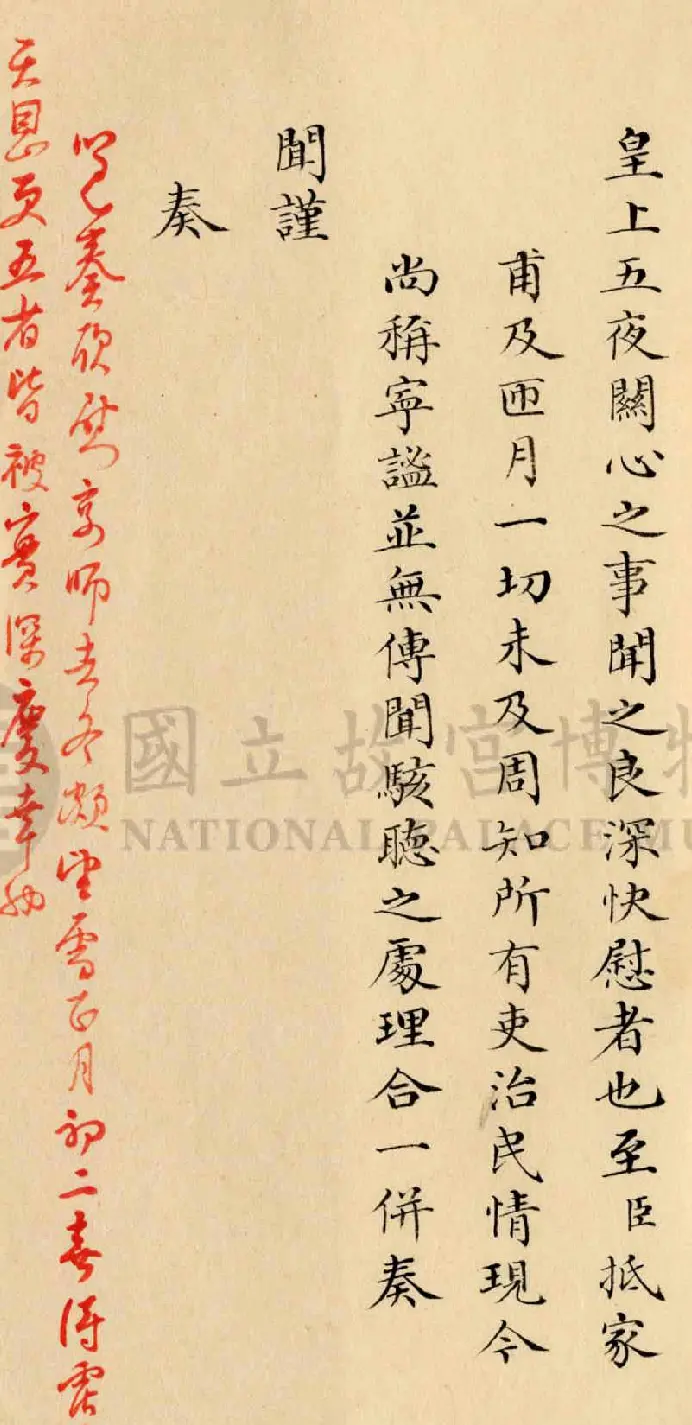 皇上五夜關心之事聞之良深快慰者也至臣抵家
甫及匝月一切未及周知所有吏治民情現今
尚稱寧謐並無傳聞駭聽之處理合一併奏
聞謹
奏
覽奏欣慰京師去冬頗望雪正月初二喜得霑
天恩更五省皆被實深慶幸
國立故宮博物
NATIONAL PALACE MU